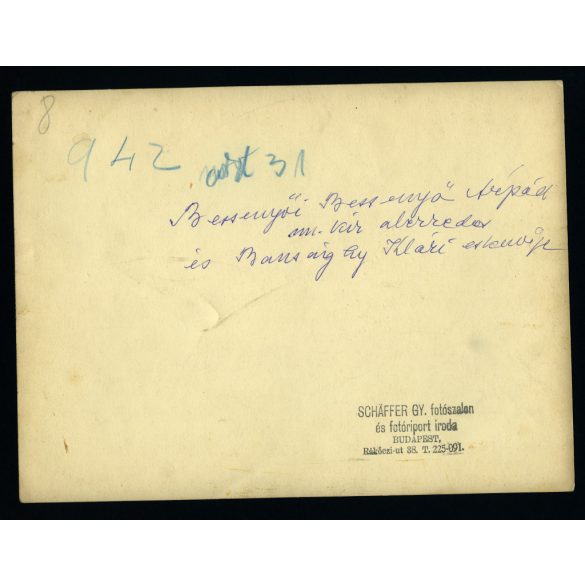 8
942 31
Bessenyői Bessenyő Árpád
m. kir alezredes
és Bansárghy Klári esküvője
SCHÄFFER GY. fotószalon
és fotóriport iroda
BUDAPEST,
Rákóczi-ut 38. T. 225-091.